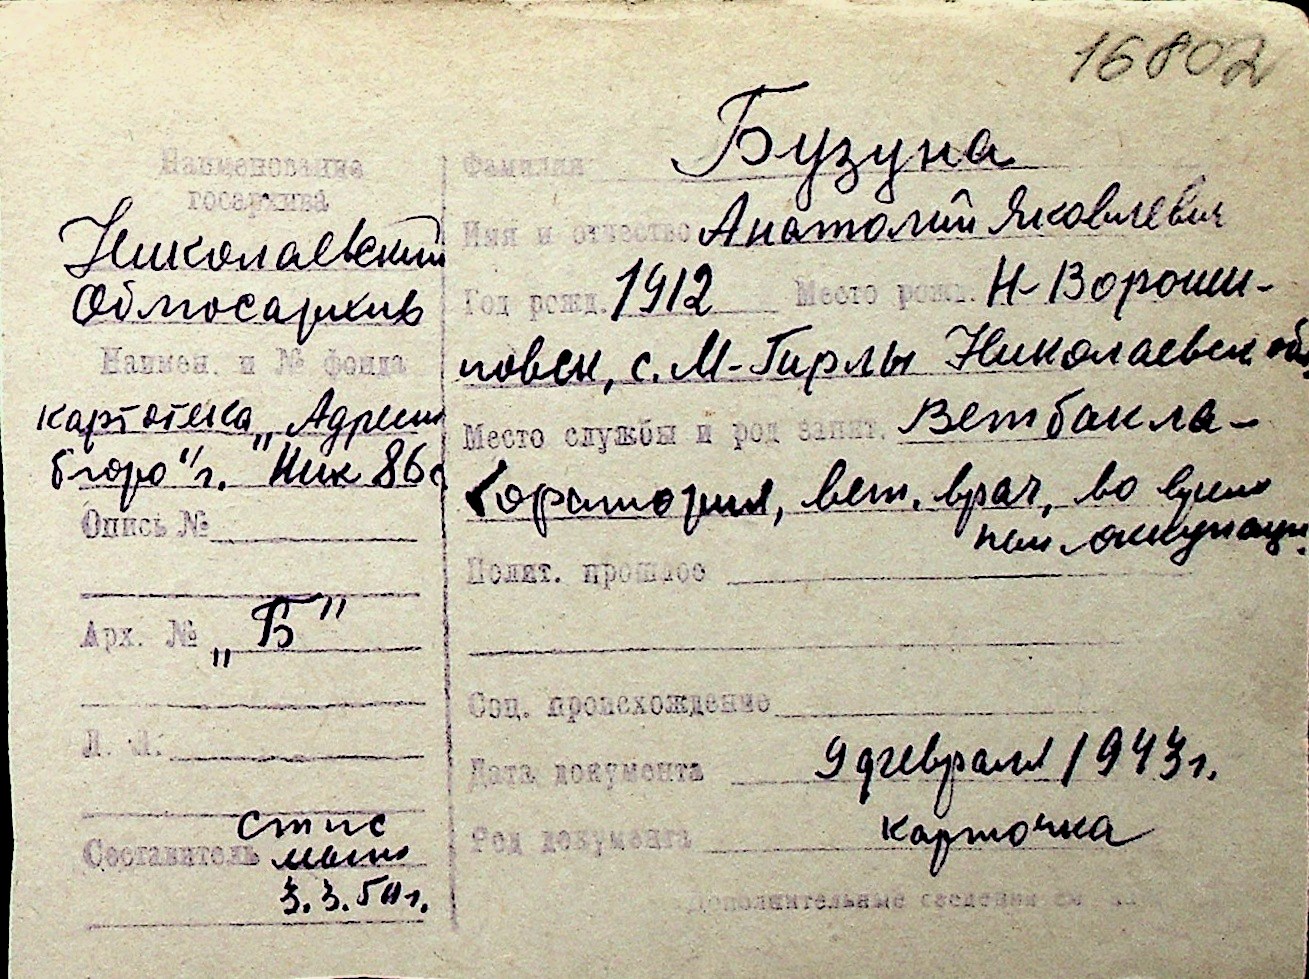 16802
Наименование
госархива
Николаевский
Облгосархив
Наимен. и № фонда
картотека „Адресн
бюро" г. Ник 86с
Опись №
Арх. № „Б"
Л. Л.
Составитель
3.3.50 г.
Фамилия Бузуна
Имя и отчество Анатолий Яковлевич
Год рожд. 1912 Место рожд. Н-Вороши-
ловск, с. М-Гирлы Николаевск обл.
Место службы и род занят. Ветбакла-
боратория, вет. врач, во время
нем оккупаци.
Полит. прошлое
Соц. происхождение
Дата документа 9 февраля 1943 г.
Род документа карточка
Дополнительные сведения см